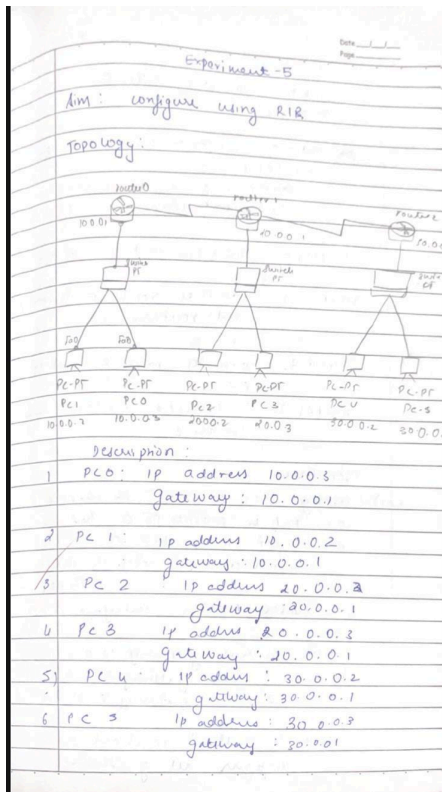 Date
Page
Experiment-5
Aim: configure using RIR
Topology:
router0
router1
10.0.01
10.0.0.1
PT
PT
PT
PC-PT
PC-PT
PC-PT
PC-PT
PC-PT
PC-PT
PC1
PC0
PC2
PC3
PC4
PC-5
10.0.0.2
10.0.0.3
2000.2
20.0.3
30.0.0.2
30.0.0.
Description:
1 PC0: IP address 10.0.0.3
Gateway: 10.0.0.1
2 PC 1: IP address 10.0.0.2
gateway: 10.0.0.1
3 PC 2 IP address 20.0.0.2
gateway: 20.0.0.1
4 PC 3 IP address 20.0.0.3
gateway: 20.0.0.1
5) PC 4: IP address: 30.0.0.2
gateway: 30.0.0.1
6 PC 5 IP address: 30.0.0.3
gateway: 30.0.01